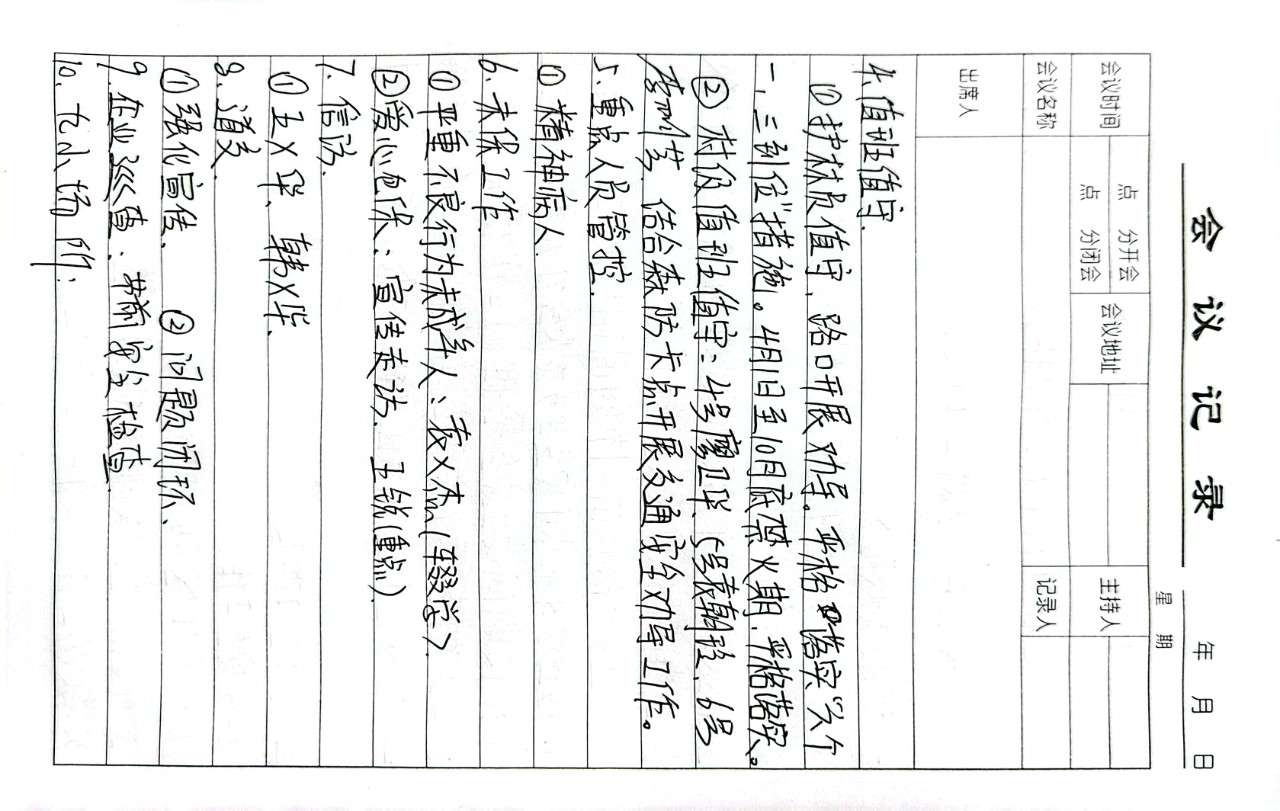 会议记录
年 月 日
星期
会议时间 点 分开会 会议地址 主持人
点 分闭会
会议名称 记录人
出席人
4.值班值守.
①护林员值守、路口开展劝导。严格落实“六个
一,三到位”措施。4月1日至10月底禁火期,严格落实。
②村级值班值守:4号廖卫华、5号袁朝珍、6号
结合森防卡点开展交通安全劝导工作。
5.重点人员管控.
①精神病人.
6.未保工作.
①严重不良行为未成年人:袁X杰(辍学).
②爱心包保:宣传走访. 王锐(重点).
7.信访.
①王X华、韩X华.
8.道交.
①强化宣传. ②问题闭环.
9.企业巡查:节前安全检查.
10.九小场所: